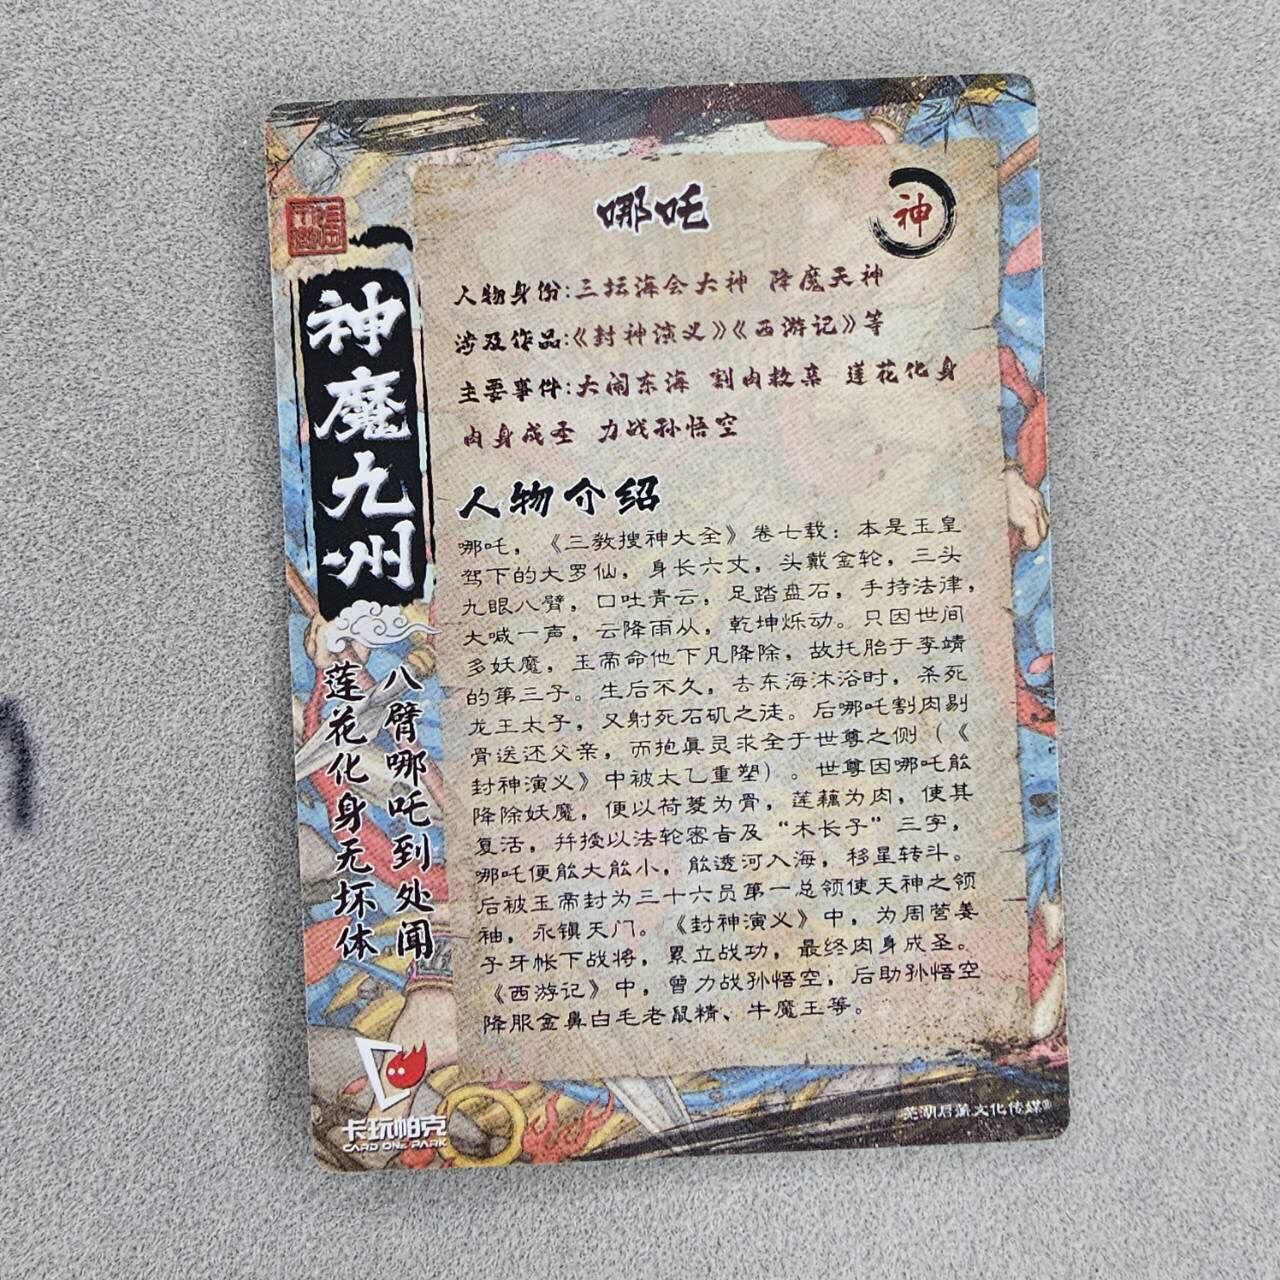 哪吒
神
人物身份:三坛海会大神 降魔天神
涉及作品:《封神演义》《西游记》等
主要事件:大闹东海 割肉救亲 莲花化身
肉身成圣 力战孙悟空
人物介绍
哪吒，《三教搜神大全》卷七载：本是玉皇
驾下的大罗仙，身长六丈，头戴金轮，三头
九眼八臂，口吐青云，足踏盘石，手持法律，
大喊一声，云降雨从，乾坤烁动。只因世间
多妖魔，玉帝命他下凡降除，故托胎于李靖
的第三子。生后不久，去东海沐浴时，杀死
龙王太子，又射死石矶之徒。后哪吒割肉剔
骨送还父亲，而抱真灵求全于世尊之侧（《
封神演义》中被太乙重塑）。世尊因哪吒能
降除妖魔，便以荷菱为骨，莲藕为肉，使其
复活，并授以法轮密旨及“木长子”三字，
哪吒便能大能小，能透河入海，移星转斗。
后被玉帝封为三十六员第一总领使天神之领
袖，永镇天门。《封神演义》中，为周营姜
子牙帐下战将，累立战功，最终肉身成圣。
《西游记》中，曾力战孙悟空，后助孙悟空
降服金鼻白毛老鼠精、牛魔王等。
神魔九州
八臂哪吒到处闻
莲花化身无坏体
卡玩帕克
CARD ONE PARK